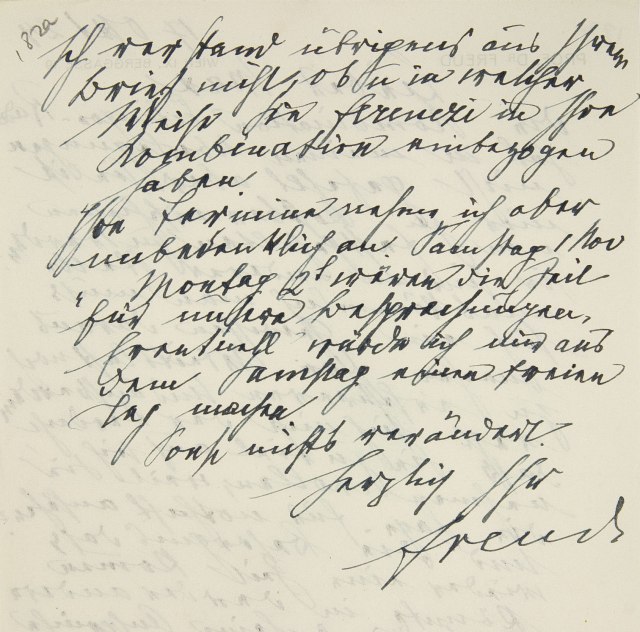 182a
Ich verstand übrigens aus Ihrem
Brief nicht, ob u in welcher
Weise Sie Ferenczi in Ihre
Kombination einbezogen
haben.
Ihre Termine nehme ich aber
unbedenklich an. Samstag 1 Nov
Montag 2t wären die Zeit
für unsere Besprechungen,
Eventuell würde ich mir aus
dem Samstag einen freien
Tag machen
Sonst nichts verändert.
Herzlich Ihr
Freud